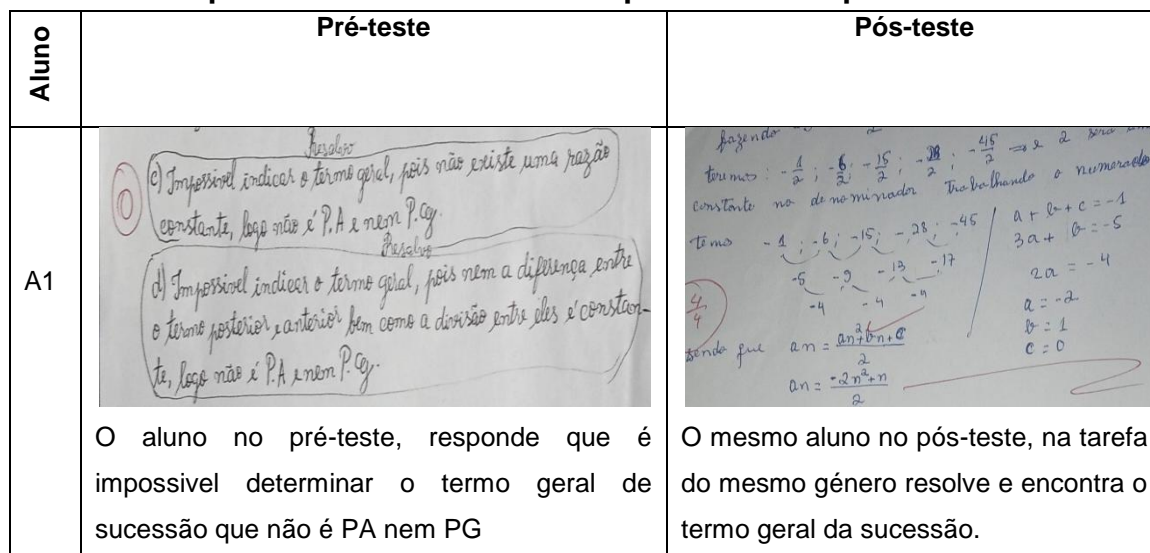 Aluno
Pré-teste
Pós-teste
A1
Resolvo
c) Impossivel indicar o termo geral, pois não existe uma razão
constante, logo não é P.A e nem P.G.
Resolvo
d) Impossivel indicar o termo geral, pois nem a diferença entre
o termo posterior e anterior bem como a divisão entre eles é constan-
te, logo não é P.A e nem P.G.
0
fazendo
teremos: -1/2 ; -6/2 ; -15/2 ; -28/2 ; -45/2 ⇒ e 2 será
constante no denominador Trabalhando o numerador
temos -1 ; -6 ; -15 ; -28 ; -45
-5 -9 -13 -17
-4 -4 -4
4/4
sendo que an = an²+bn+c/2
an = -2n²+n/2
a + b + c = -1
3a + b = -5
2a = -4
a = -2
b = 1
c = 0
O aluno no pré-teste, responde que é
impossivel determinar o termo geral de
sucessão que não é PA nem PG
O mesmo aluno no pós-teste, na tarefa
do mesmo género resolve e encontra o
termo geral da sucessão.